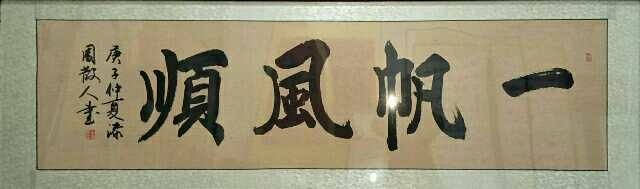 一帆風順
庚子仲夏添
園散人書